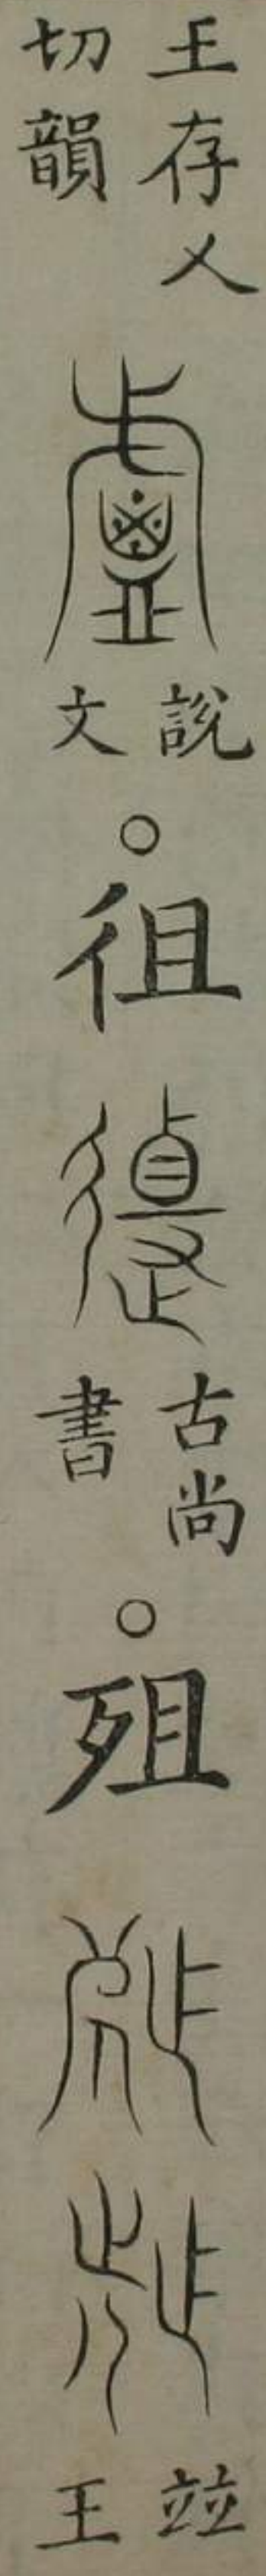 王存乂切韻 說文○徂 古尚書○殂 竝王